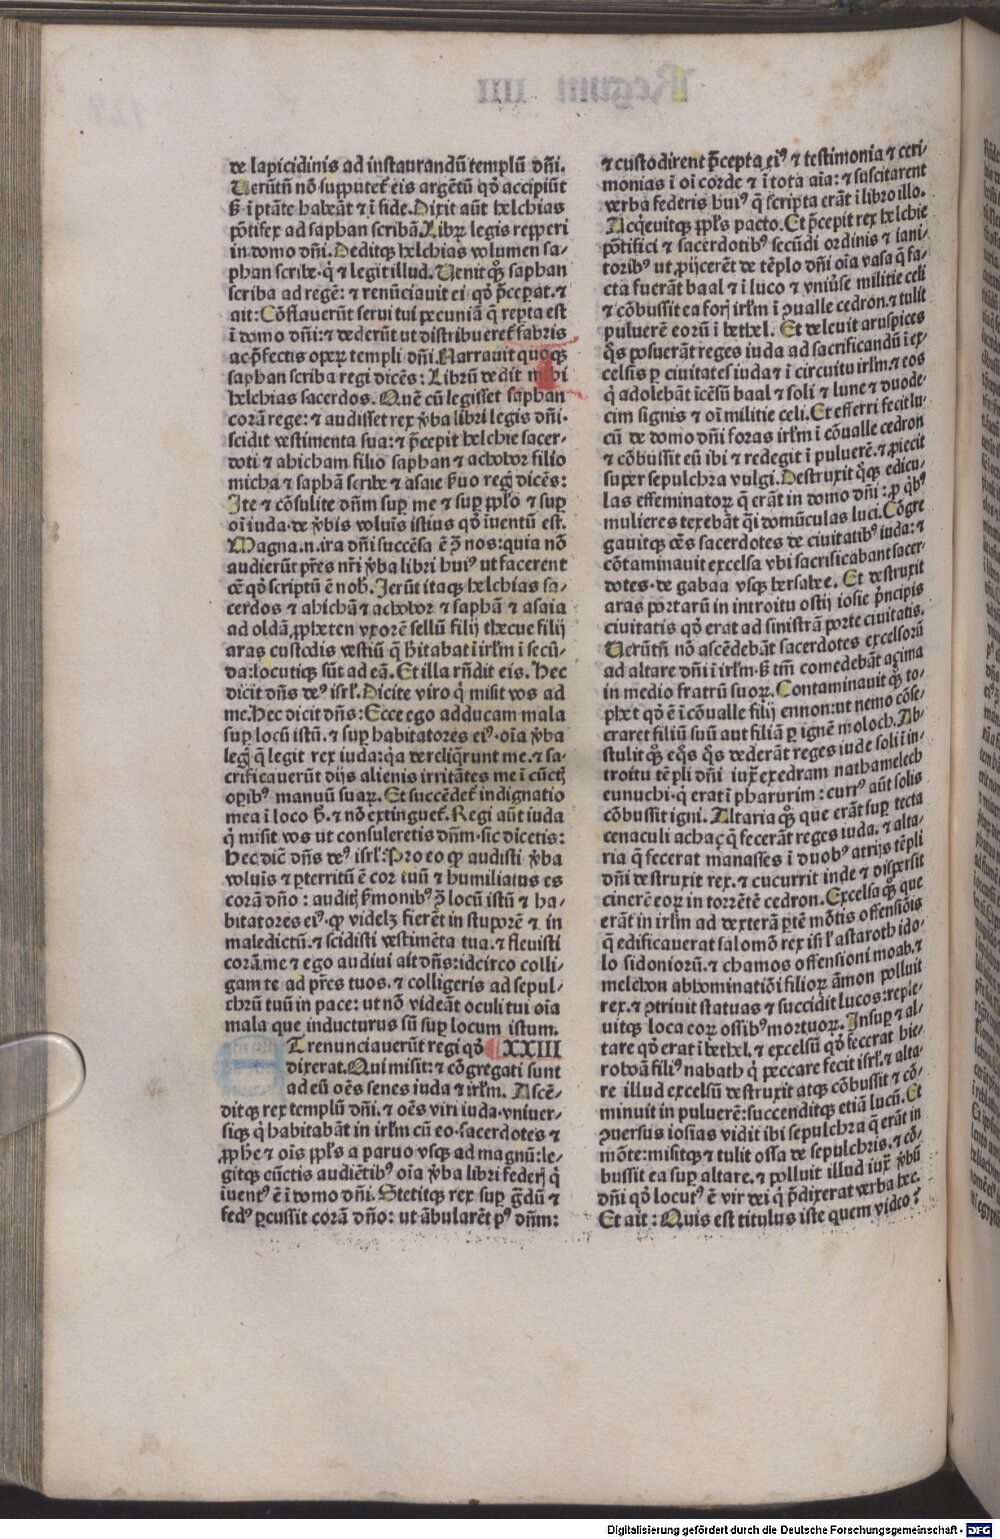 de lapicidinis ad instaurandũ templũ dñi.
Uerũtñ nõ supputet̃ eis argẽtũ qđ accipiũt
ß ĩ ptãte habeãt ⁊ ĩ fide. Dixit aũt helchias
põtifex ad saphan scribã. Libꝝ legis repperi
in domo dñi. Deditqꝫ helchias volumen sa⸗
phan scribe·q̇ ⁊ legit illud. Uenit qꝫ saphan
scriba ad regẽ: ⁊ renũciavit ei qđ p̃cepat.⁊
ait: Cõflaverũt servi tui pecuniã q̃ repta est
ĩ domo dñi: ⁊ dederũt ut distribueret̃ fabris
ac p̃fectis opeꝝ templi dñi. Narravit quoqꝫ
saphan scriba regi dicẽs: Librũ dedit mihi
helchias sacerdos. Quẽ cũ legisset saphan
corã rege: ⁊ audisset rex ṽba libri legis dñi·
scidit vestimenta sua: ⁊ p̃cepit helchie sacer⸗
doti ⁊ ahicham filio saphan ⁊ achobor filio
micha ⁊ saphã scribe ⁊ asaie ß̃uo regꝭ dicẽs:
Ite ⁊ cõsulite dñm sup me ⁊ sup pplo ⁊ sup
oĩ iuda·de ṽbis volumĩs istius qđ ĩventũ est.
Magna.n.ira dñi succẽsa ẽ ꝯ̃ nos: quia nõ
audierũt pr̃es nr̃i ṽba libri huiꝰ ut facerent
õẽ qđ scriptũ ẽ nob̃. Ierũt itaqꝫ helchias sa⸗
cerdos ⁊ ahichã ⁊ achobor ⁊ saphã ⁊ asaia
ad oldã ꝓpheten vxorẽ sellũ filij thecue filij
aras custodis vestiũ q̃ h̃itabat ĩ irłm ĩ secũ⸗
da: locutiqꝫ sũt ad eã. Et illa rñdit eis. Hec
dicit dñs deꝰ isrł. Dicite viro q̇ misit vos ad
me. Hec dicit dñs: Ecce ego adducam mala
sup locũ istũ. ⁊ sup habitatores eiꝰ· oĩa ṽba
legꝭ q̃ legit rex iuda: q̇a dereliq̃runt me. ⁊ sa⸗
crificaverũt dijs alienis irritãtes me ĩ cũctꝭ
opibꝰ manuũ suaꝝ. Et succẽdet̃ indignatio
mea ĩ loco h̃. ⁊ nõ extinguet̃. Regi aũt iuda
q̇ misit vos ut consuleretis dñm·sic dicetis:
Hec dic̃ dñs deꝰ isrł: Pro eo ꝙ audisti ṽba
volumĩs ⁊ pterritũ ẽ cor tuũ ⁊ humiliatus es
corã dño: auditꝭ ß̃monibꝰ ꝯ̃ locũ istũ ⁊ ha⸗
bitatores eiꝰ· ꝙ videlꝫ fierẽt in stuporẽ ⁊ in
maledictũ. ⁊ scidisti vestimẽta tua. ⁊ flevisti
corã me ⁊ ego audivi ait dñs: idcirco colli⸗
gam te ad pr̃es tuos. ⁊ colligeris ad sepul⸗
chrũ tuũ in pace: ut nõ videãt oculi tui oĩa
mala que inducturus sũ sup locum istum.
ETrenunciaverũt regi qđ XXIII
dixerat. Qui misit: ⁊ cõgregati sunt
ad eũ oẽs senes iuda ⁊ irłm. Ascẽ⸗
ditqꝫ rex templũ dñi. ⁊ oẽs viri iuda·vniver⸗
siqꝫ q̇ habitabãt in irłm cũ eo·sacerdotes ⁊
ꝓphe ⁊ oĩs ppls a parvo vsqꝫ ad magnũ: le⸗
gitqꝫ cũctis audiẽtibꝰ oĩa ṽba libri federꝭ q̇
ĩventꝰ ẽ ĩ domo dñi. Stetitqꝫ rex sup g̃dũ ⁊
fedꝰ pcussit corã dño: ut ãbularẽt pꝰ dñm:
⁊ custodirent p̃cepta eiꝰ ⁊ testimonia ⁊ ceri⸗
monias ĩ oĩ corde ⁊ ĩ tota aĩa: ⁊ suscitarent
verba federis huiꝰ q̃ scripta erãt ĩ libro illo.
Acq̇evitqꝫ ppls pacto. Et p̃cepit rex helchie
põtifici ⁊ sacerdotibꝰ secũdi ordinis ⁊ iani⸗
toribꝰ ut ꝓijcerẽt de tẽplo dñi oĩa vasa q̃ fa⸗
cta fuerãt baal ⁊ ĩ luco ⁊ vniṽse militie celi
⁊ cõbussit ea forꝭ irłm ĩ ꝯvalle cedron. ⁊ tulit
pulverẽ eorũ ĩ bethel. Et delevit aruspices
q̊s posuerãt reges iuda ad sacrificandũ ĩ ex⸗
celsis p civitates iuda ⁊ ĩ circuitu irłm. ⁊ eos
q̇ adolebãt ĩcẽsũ baal ⁊ soli ⁊ lune ⁊ duode⸗
cim signis ⁊ oĩ militie celi. Et efferri fecit lu⸗
cũ de domo dñi foras irłm ĩ cõvalle cedron
⁊ cõbussit eũ ibi ⁊ redegit ĩ pulverẽ. ⁊ ꝓiecit
super sepulchra vulgi. Destruxit q̊qꝫ edicu⸗
las effeminatoꝝ q̃ erãt in domo dñi: ꝓ q̇bꝰ
mulieres texebãt q̇i domũculas luci. Cõgre
gavitqꝫ oẽs sacerdotes de civitatibꝰ iuda: ⁊
cõtaminavit excelsa vbi sacrificabant sacer⸗
dotes·de gabaa vsqꝫ bersabee. Et destruxit
aras portarũ in introitu ostij iosie p̃ncipis
civitatis qđ erat ad sinistrã porte civitatis.
Uerũtñ nõ ascẽdebãt sacerdotes excelsorũ
ad altare dñi ĩ irłm. ß tm̃ comedebãt açima
in medio fratrũ suoꝝ. Contaminavit qꝫ to⸗
phet qđ ẽ ĩ cõvalle filij ennon: ut nemo cõse⸗
craret filiũ suũ aut filiã p ignẽ moloch. Ab⸗
stulit qꝫ eq̊s q̊s dederãt reges iude soli ĩ in⸗
troitu tẽpli dñi iuxͭ exedram nathamelech
eunuchi·q̇ erat ĩ pharurim: currꝰ aũt solis
cõbussit igni. Altaria qꝫ que erãt sup tecta
cenaculi achaç q̃ fecerãt reges iuda. ⁊ alta⸗
ria q̃ fecerat manasses ĩ duobꝰ atrijs tẽpli
dñi destruxit rex. ⁊ cucurrit inde ⁊ dispersit
cinerẽ eoꝝ in torrẽtẽ cedron. Excelsa qꝫ que
erãt in irłm ad dexterã ptẽ mõtis offensiõis
q̃ edificaverat salomõ rex isrł astaroth ido⸗
lo sidoniorũ. ⁊ chamos offensioni moab. ⁊
melchon abhominatiõi filioꝝ ãmon polluit
rex. ⁊ ꝯtrivit statuas ⁊ succidit lucos: reple⸗
vitqꝫ loca eoꝝ ossibꝰ mortuoꝝ. Insup ⁊ al⸗
tare qđ erat ĩ bethel. ⁊ excelsũ qđ fecerat hie⸗
roboã filiꝰ nabath q̇ peccare fecit isrł. ⁊ alta⸗
re illud excelsũ destruxit atqꝫ cõbussit ⁊ cõ⸗
minuit in pulverẽ: succenditqꝫ etiã lucũ. Et
ꝯversus iosias vidit ibi sepulchra q̃ erãt in
mõte: misitqꝫ ⁊ tulit ossa de sepulchris. ⁊ cõ⸗
bussit ea sup altare. ⁊ polluit illud iuxͭ ṽbũ
dñi qđ locutꝰ ẽ vir dei q̇ p̃dixerat verba hec.
Et ait: Quis est titulus iste quem video?
Digitalisierung gefördert durch die Deutsche Forschungsgemeinschaft - DFG